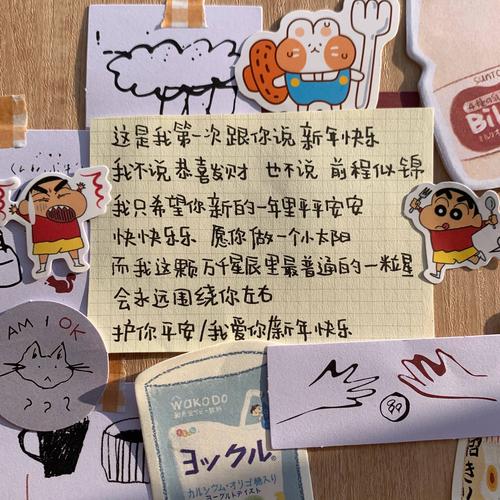 这是我第一次跟你说 新年快乐
我不说 恭喜发财 也不说 前程似锦
我只希望你新的一年里平平安安
快快乐乐 愿你做一个小太阳
而我这颗万千星辰里最普通的一粒星
会永远围绕你左右
护你平安/我爱你/新年快乐
AM I OK
???
WaKODO
ヨックル
カルシウム・オリゴ糖入り
ヨーグルトテイスト
SUNTO
Bil